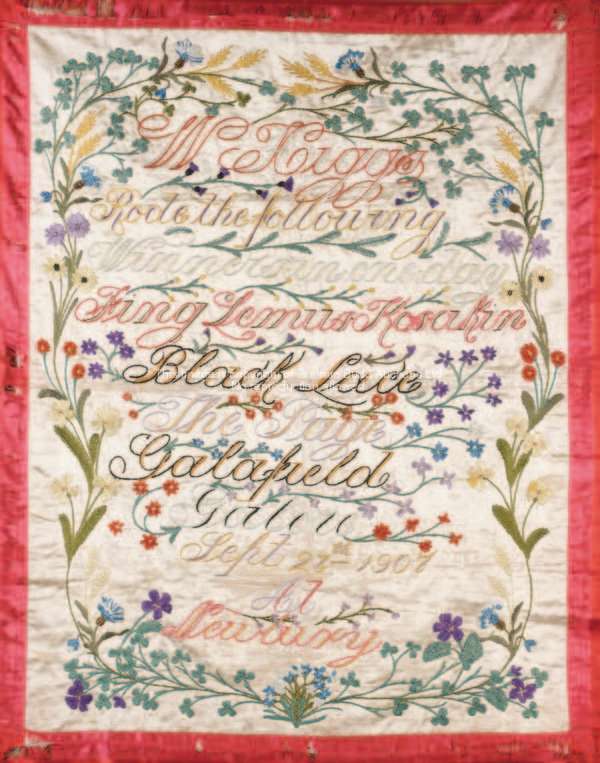 W Higgs
Rode the following
Winners in one day
King Lemus Kosakin
Black Lace
The Page
Galafield
Sept 21st 1907
At
Newbury